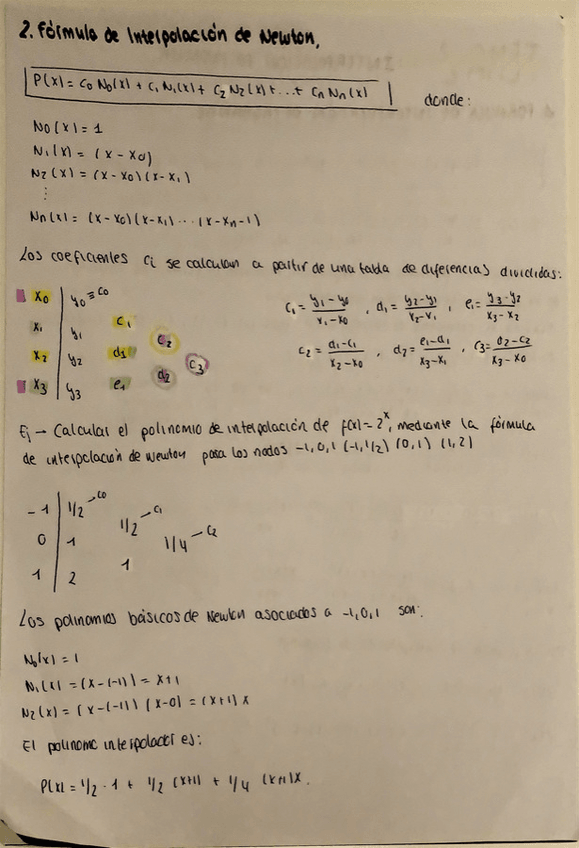 2. Fórmula de Interpolación de Newton,
P(x) = C0 N0(x) + C1 N1(x) + C2 N2(x) + ... + Cn Nn(x) donde:
N0(x) = 1
N1(x) = (x - x0)
N2(x) = (x - x0)(x - x1)
⋮
Nn(x) = (x - x0)(x - x1) ... (x - xn-1)
Los coeficientes Ci se calculan a partir de una tabla de diferencias divididas:
x0 | y0 ≡ C0
C1
x1 | y1
C2
x2 | y2
d1
C3
d2
x3 | y3
e1
C1 = (y1 - y0)/(x1 - x0) , d1 = (y2 - y1)/(x2 - x1) , e1 = (y3 - y2)/(x3 - x2)
C2 = (d1 - C1)/(x2 - x0) , d2 = (e1 - d1)/(x3 - x1) , C3 = (d2 - C2)/(x3 - x0)
Ej → Calcular el polinomio de interpolación de f(x) = 2^x, mediante la fórmula
de interpolación de Newton para los nodos -1, 0, 1 (-1, 1/2) (0, 1) (1, 2)
-1 | 1/2 — C0
1/2 — C1
0 | 1
1/4 — C2
1
1 | 2
Los polinomios básicos de Newton asociados a -1, 0, 1 son:
N0(x) = 1
N1(x) = (x - (-1)) = x+1
N2(x) = (x - (-1)) (x - 0) = (x+1) x
El polinomio interpolador es:
P(x) = 1/2 · 1 + 1/2 (x+1) + 1/4 (x+1)x.